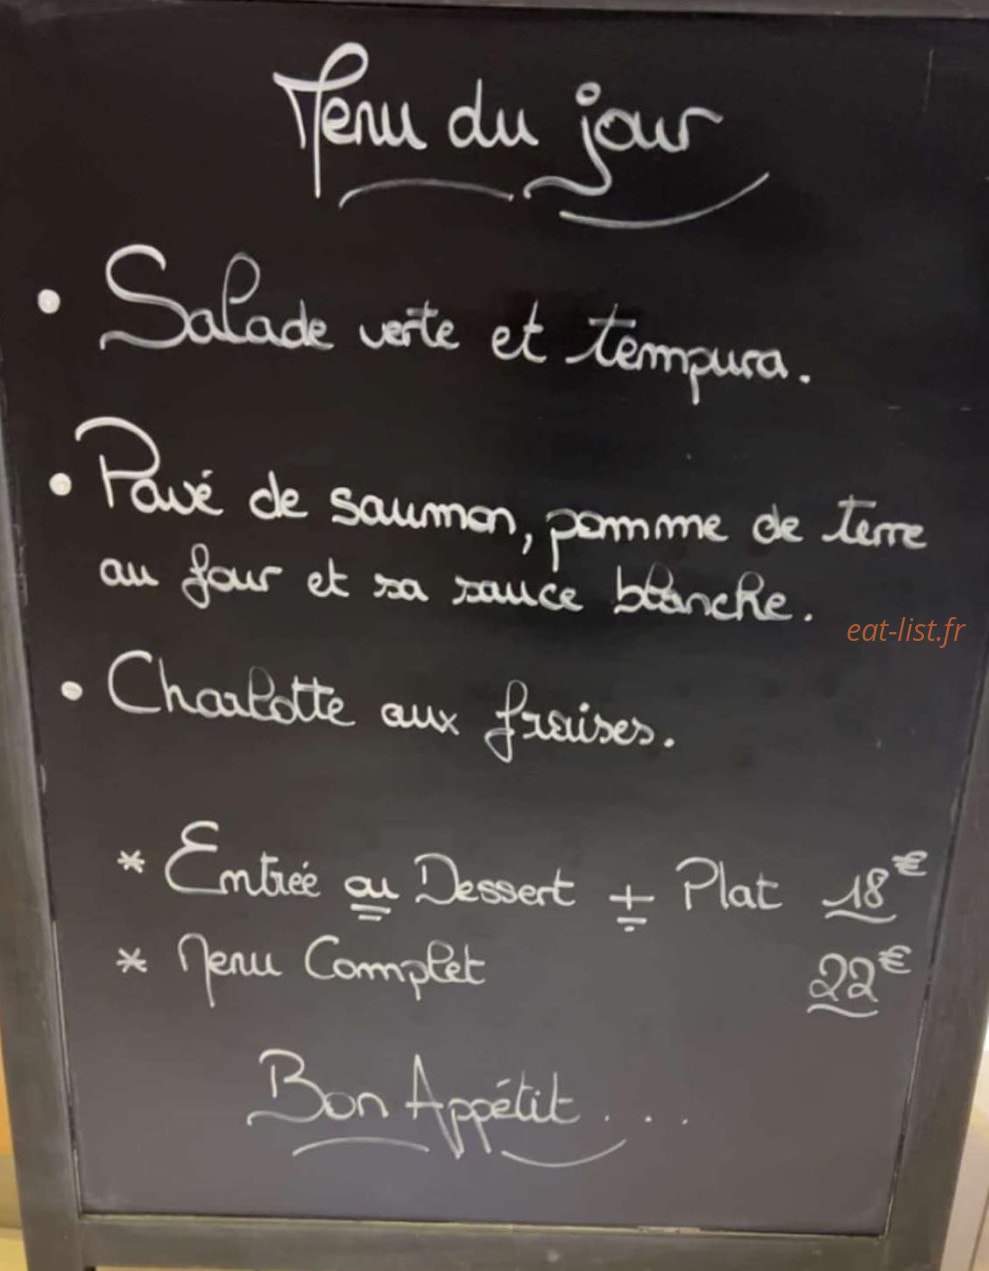 Menu du jour
• Salade verte et tempura.
• Pavé de saumon, pomme de terre
au four et sa sauce blanche.
eat-list.fr
• Charlotte aux fraises.
* Entrée ou Dessert + Plat 18€
* Menu Complet 22€
Bon Appétit . . .